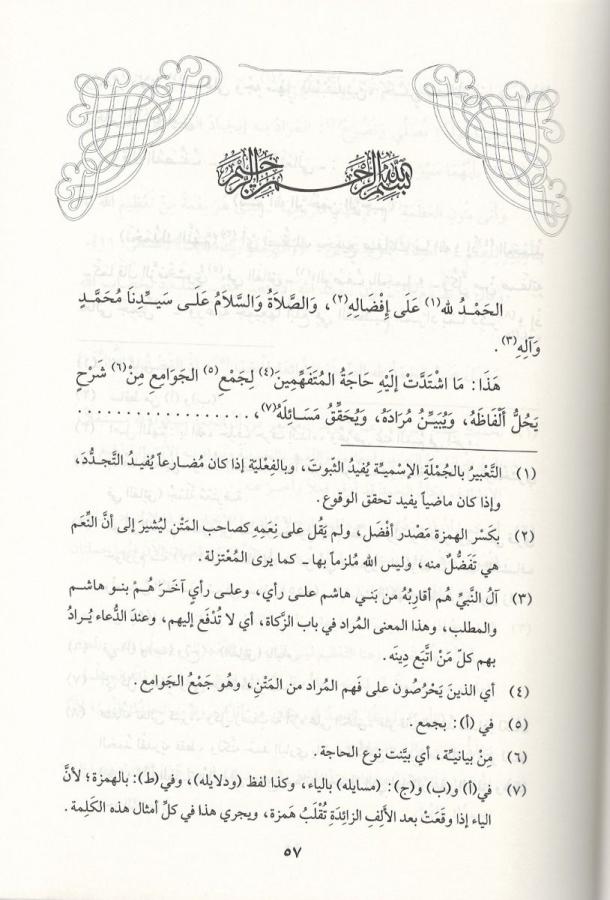 بسم الله الرحمن الرحيم
الحَمْـدُ لله(١) عَلَى إِفْضَالِهِ(٢)، وَالصَّلاَةُ وَالسَّلاَمُ عَلَـى سَيِـدِنَا مُحَمَّـدٍ
وَآلِهِ(٣).
هَذَا: مَا اشْتَدَّتْ إِلَيْهِ حَاجَةُ المُتَفَهِّمِينَ(٤) لِجَمْعِ(٥) الجَوَامِعِ مِنْ(٦) شَرْحٍ
يَحُلُّ أَلْفَاظَهُ، وَيُبَيِّـنُ مُرَادَهُ، وَيُحَقِّقُ مَسَـائِلَهُ(٧)، . . . . . . . . . . . . . . . . .
(١) التَّعْبيرُ بالجُمْلَةِ الإسْميـةِ يُفيدُ الثبوتَ، وبالفِعْليّة إذا كان مُضارعاً يُفيـدُ التَّجدُّدَ،
وإذا كان ماضياً يفيد تحقق الوقوع.
(٢) بكَسْر الهمزة مَصْدر أفْضَل، ولم يَقُل على نِعَمِهِ كصاحب المَتْن ليُشيرَ إلى أنَّ النِّعَم
هي تَفَضُّلٌ منه، وليس الله مُلزماً بها ـ كما يرى المُعْتزلة.
(٣) آلُ النَّبيِّ هُم أقاربُهُ من بَنـي هاشم علـى رأي، وعلـى رأيٍ آخَـرَ هُـمْ بنـو هاشـم
والمطلب، وهذا المعنى المُراد في باب الزَّكاة، أي لا تُدْفَع إليهم، وعندَ الدُّعاء يُـرادُ
بهم كلّ مَنْ اتَّبَع دِينَه.
(٤) أي الذينَ يَحْرصُون على فَهم المُراد من المَتْنِ، وهُو جَمْعُ الجَوامِع.
(٥) في (أ): بجمع.
(٦) مِنْ بيانيـة، أي بيَّنت نوع الحاجة.
(٧) في(أ) و(ب) و(ج): (مسايله) بالياء، وكذا لفظ (ودلايله)، وفي(ط): بالهمزة؛ لأنَّ
الياء إذا وقَعَتْ بعد الألِفِ الزائدةِ تُقْلَبُ هَمزة، ويجري هذا في كلِّ أمثال هذه الكَلِمة.
٥٧